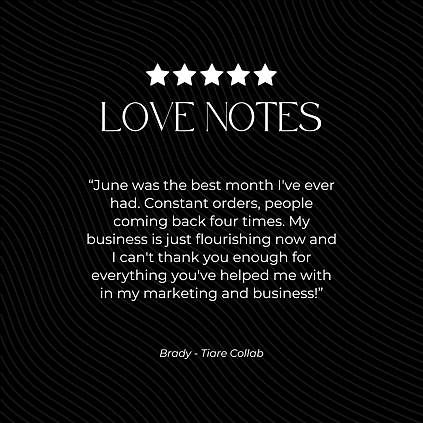 LOVE NOTES
“June was the best month I've ever
had. Constant orders, people
coming back four times. My
business is just flourishing now and
I can't thank you enough for
everything you've helped me with
in my marketing and business!”
Brady - Tiare Collab